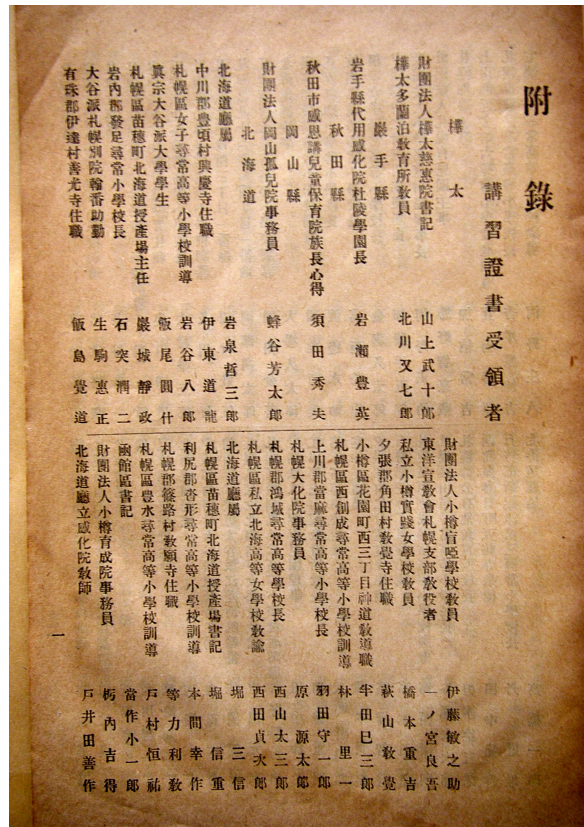 附錄
講習證書受領者
樺太
財團法人樺太慈惠院書記 山上武十郎
樺太多蘭泊敎育所敎員 北川又七郎
巖手縣
岩手縣代用感化院杜陵學園長 岩瀨豊英
秋田縣
秋田市感恩講兒童保育院族長心得 須田秀夫
岡山縣
財團法人岡山孤兒院事務員 蜂谷芳太郎
北海道
北海道廳屬 岩泉哲三郎
中川郡豊頃村興慶寺住職 伊東道龍
札幌區女子尋常高等小學校訓導 岩谷八郎
眞宗大谷派大學學生 飯尾圓什
札幌區苗穗町北海道授產場主任 巖城靜政
岩內郡發足尋常小學校長 石突潤二
大谷派札幌別院輪番助勤 生駒惠正
有珠郡伊達村善光寺住職 飯島覺道
財團法人小樽盲啞學校敎員 伊藤敏之助
東洋宣敎會札幌支部敎役者 一ノ宮良吾
私立小樽實踐女學校敎員 橋本重吉
夕張郡角田村敎覺寺住職 萩山敎覺
小樽區花園町西三丁目神道敎導職 半田巳三郎
札幌區西創成尋常高等小學校訓導 林里一
上川郡當麻尋常高等小學校長 羽田守一郎
札幌大化院事務員 原源太郎
札幌郡鴻城尋常高等學校長 西山太三郎
札幌區私立北海高等女學校敎諭 西田貞次郎
北海道廳屬 堀三信
札幌區苗穗町北海道授產場書記 堀信重
利尻郡沓形尋常高等小學校訓導 本間幸作
札幌郡篠路村敎願寺住職 等力利敎
札幌區豊水尋常高等小學校訓導 戶村恒祐
函館區書記 當作小一郎
財團法人小樽育成院事務員 栃內吉得
北海道廳立感化院敎師 戶井田善作
一